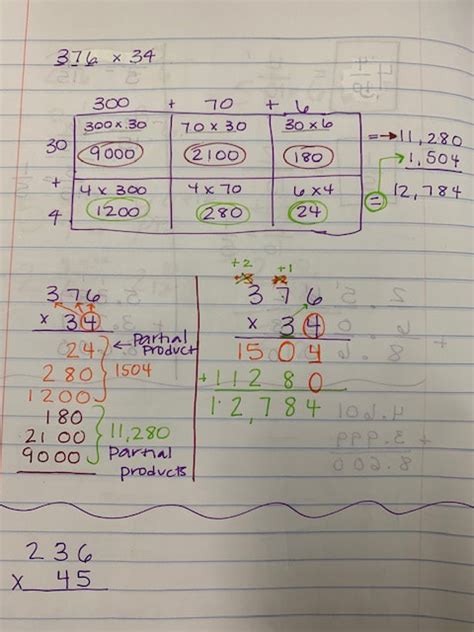 376 x 34
300 + 70 + 6
300 x 30 70 x 30 30 x 6
30 9000 2100 180 = → 11,280
+ 1,504
4 x 300 4 x 70 6 x 4 = 12,784
4 1200 280 24
+2
+3 +1
376 376
x 34 x 34
24 ← Partial Product 1504
280 1504 + 11280
1200 12,784
180
2100 11,280
9000 Partial products
236
x 45